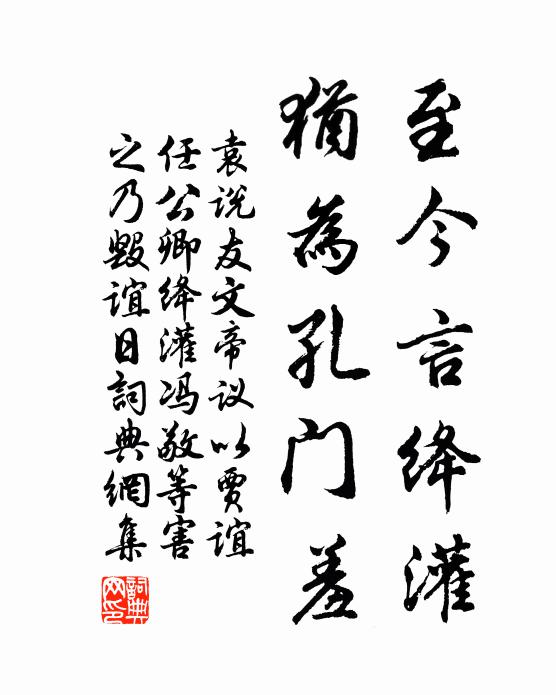 至今言绛灌
猶為孔门羞
袁说友文帝议以贾谊
任公卿绛灌冯敬等害
之乃毁谊日詞典網集
詞典
网印